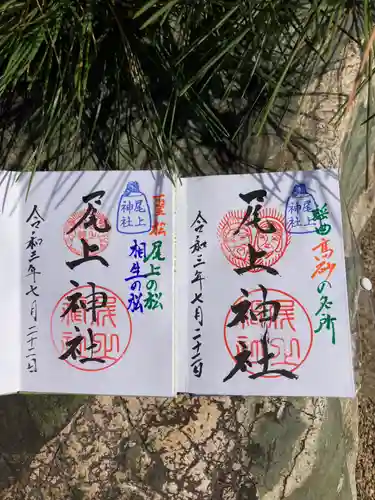 謡曲高砂の名所
尾上神社
尾上神社
令和三年七月二十二日
尾上の松
相生の松
尾上神社
尾上神社
令和三年七月二十二日